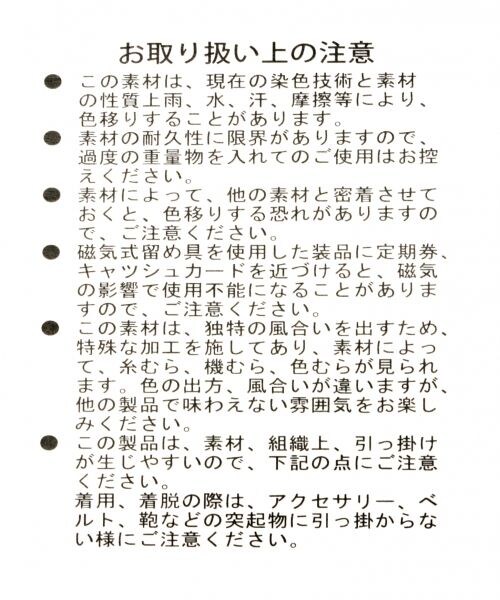 お取り扱い上の注意
● この素材は、現在の染色技術と素材
の性質上雨、水、汗、摩擦等により、
色移りすることがあります。
● 素材の耐久性に限界がありますので、
過度の重量物を入れてのご使用はお控
えください。
● 素材によって、他の素材と密着させて
おくと、色移りする恐れがありますの
で、ご注意ください。
● 磁気式留め具を使用した装品に定期券、
キャツシュカードを近づけると、磁気
の影響で使用不能になることがありま
すので、ご注意ください。
● この素材は、独特の風合いを出すため、
特殊な加工を施してあり、素材によっ
て、糸むら、機むら、色むらが見られ
ます。色の出方、風合いが違いますが、
他の製品で味わえない雰囲気をお楽し
みください。
● この製品は、素材、組織上、引っ掛け
が生じやすいので、下記の点にご注意
ください。
着用、着脱の際は、アクセサリー、ベ
ルト、鞄などの突起物に引っ掛からな
い様にご注意ください。